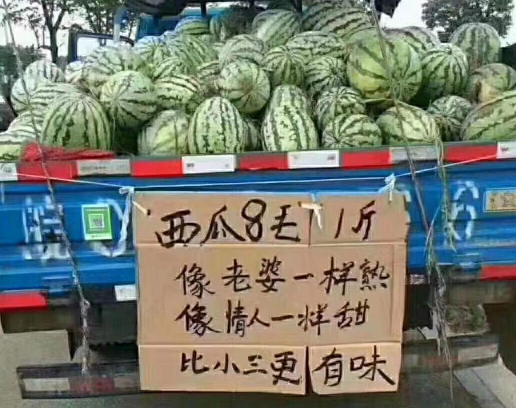 西瓜8毛1斤
像老婆一样熟
像情人一样甜
比小三更有味